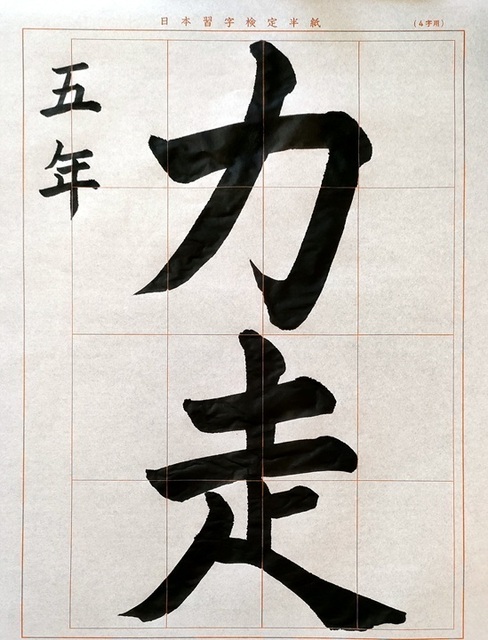 日本習字検定半紙
(4字用)
力走
五年